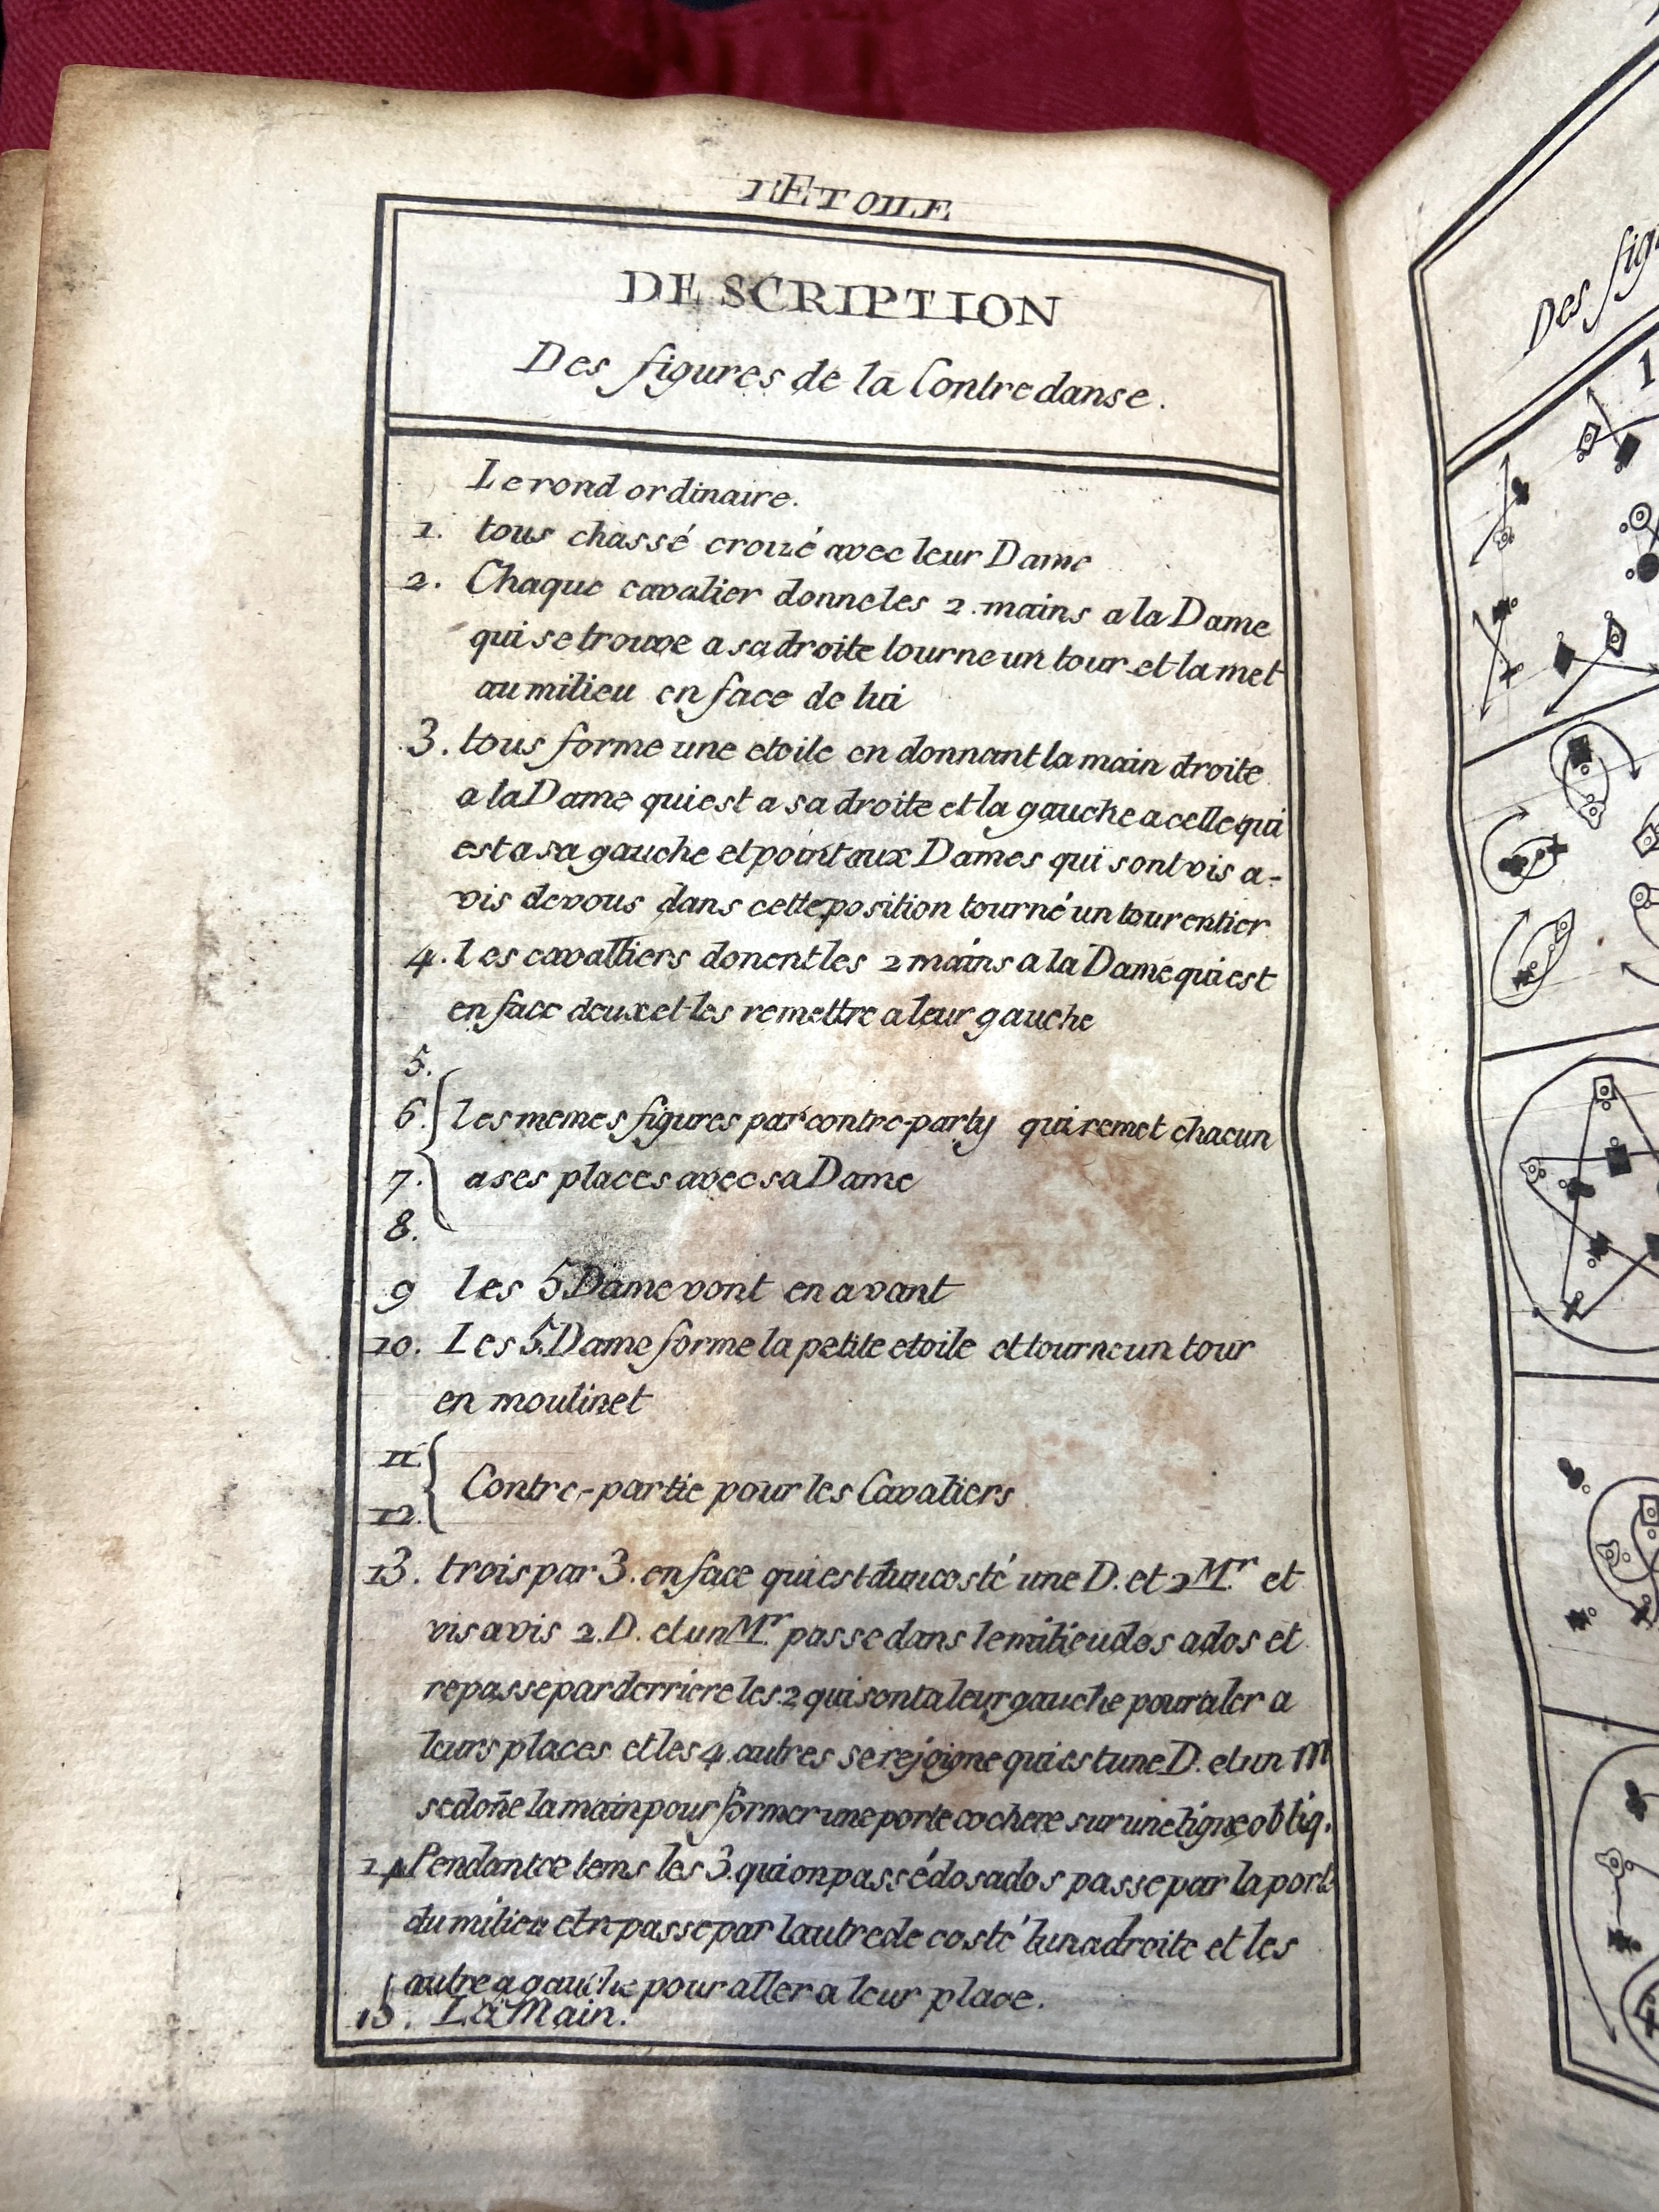 l'ETOILE
DESCRIPTION
Des figures de la Contredanse.
Le rond ordinaire.
1. tous chassé croizé avec leur Dame
2. Chaque cavalier donne les 2. mains a la Dame
qui se trouve a sa droite tourne un tour et la met
au milieu en face de lui
3. tous forme une etoile en donnant la main droite
a la Dame qui est a sa droite et la gauche a celle qui
est a sa gauche et point aux Dames qui sont vis a-
vis de vous dans cette position tourné un tour entier
4. les cavalliers donent les 2 mains a la Dame qui est
en face deux et les remettre a leur gauche
5.
6. les memes figures par contre-party qui remet chacun
7. a ses places avec sa Dame
8.
9 les 5 Dame vont en avant
10. Les 5 Dame forme la petite etoile et tourne un tour
en moulinet
11.
Contre-partie pour les Cavaliers
12.
13. trois par 3. en face qui est dun costé une D. et 2 Mr. et
vis a vis 2. D. et un Mr. passe dans le milieu dos a dos et
repasse par derriere les 2 qui sont a leur gauche pour aler a
leurs places et les 4 autres se rejoigne qui est une D. et un M
se doñe la main pour former une porte cochere sur une ligne obliq.
14 Pendant ce tems les 3. qui on passé dos a dos passe par la port
du milieu et r passe par lautre de costé lun a droite et les
autre a gauche pour aller a leur place.
15. La Main.
Des fig
1